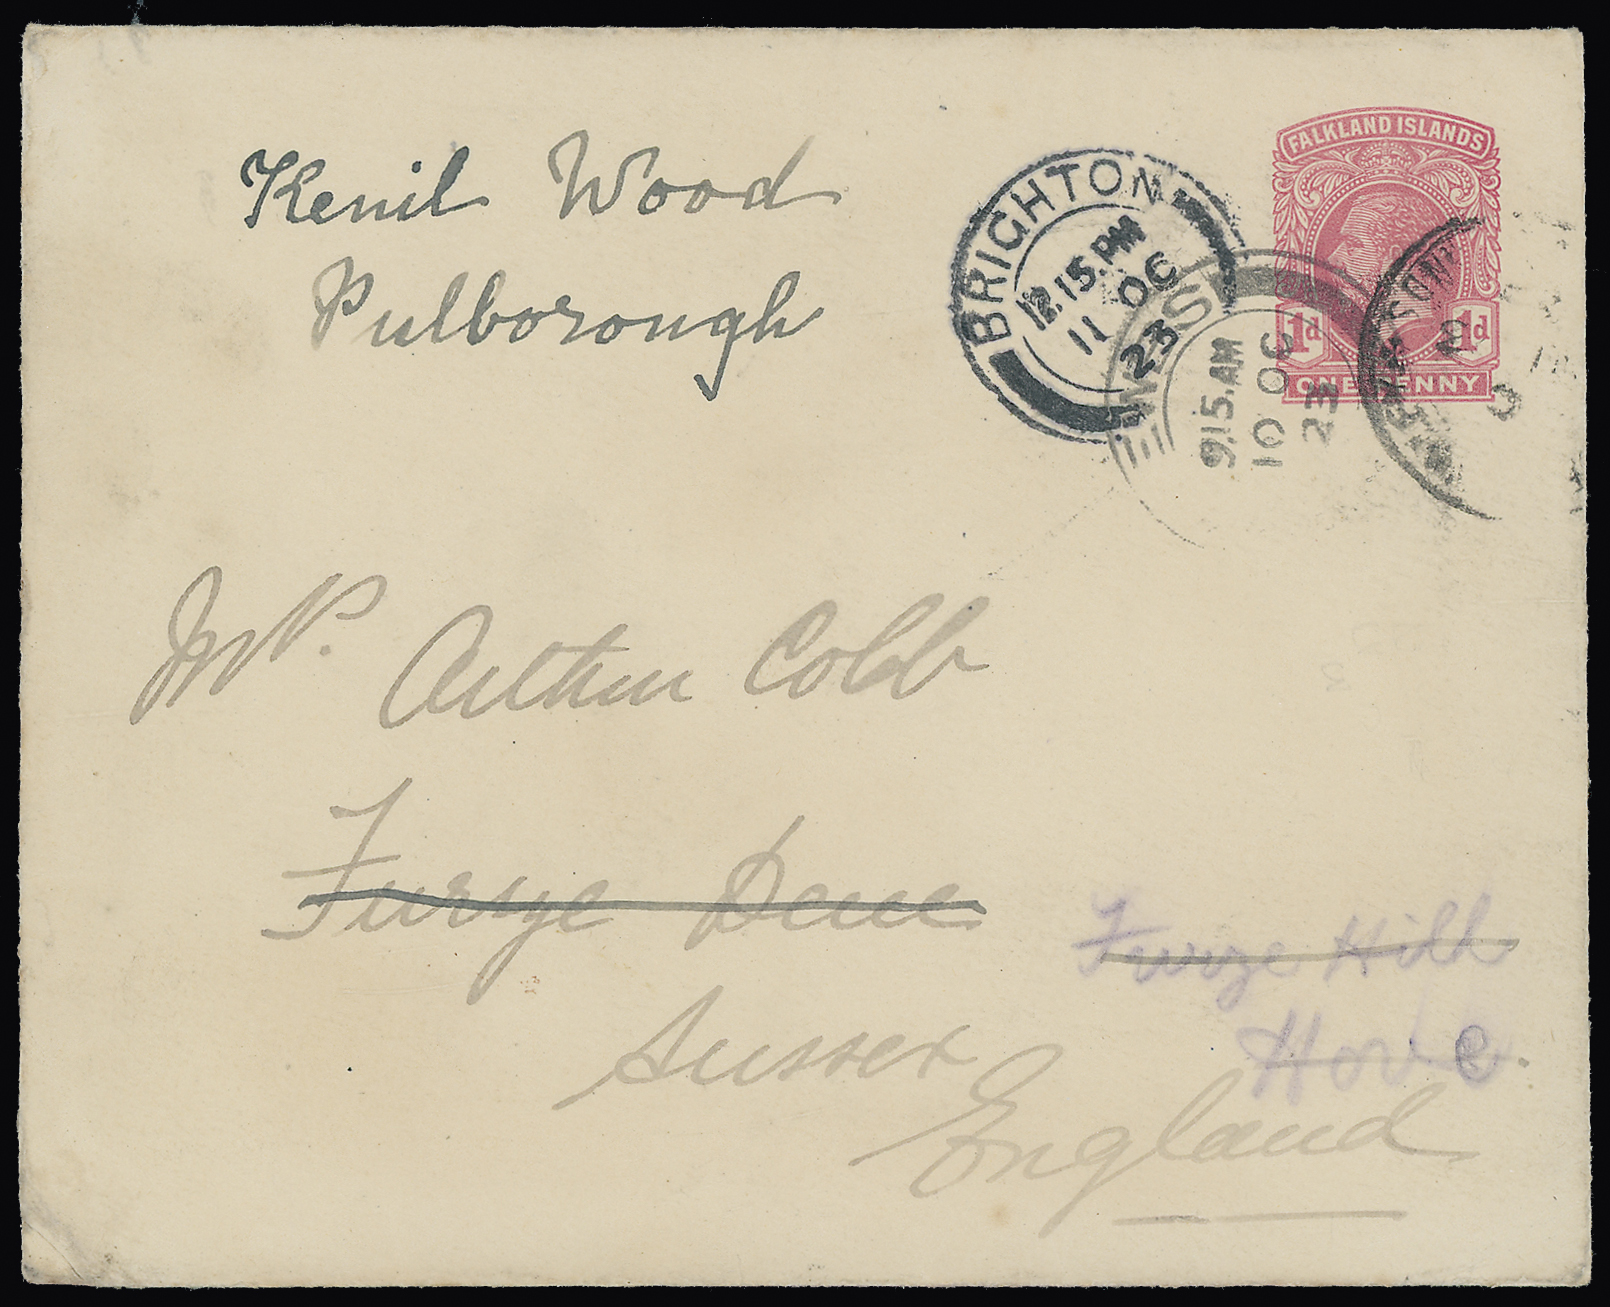 FALKLAND ISLANDS
1d 1d
ONE PENNY
BRIGHTON
12.15.PM
11 OC
23
9.15.AM
10 OC
23
Kenil Wood
Pulborough
Mr. Arthur Cobb
Furze Dene
Furze Hill
Hove.
Sussex
England